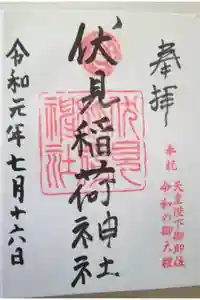 奉拝
奉祝
天皇陛下御即位
令和の御大禮
伏見稲荷神社
令和元年七月十六日